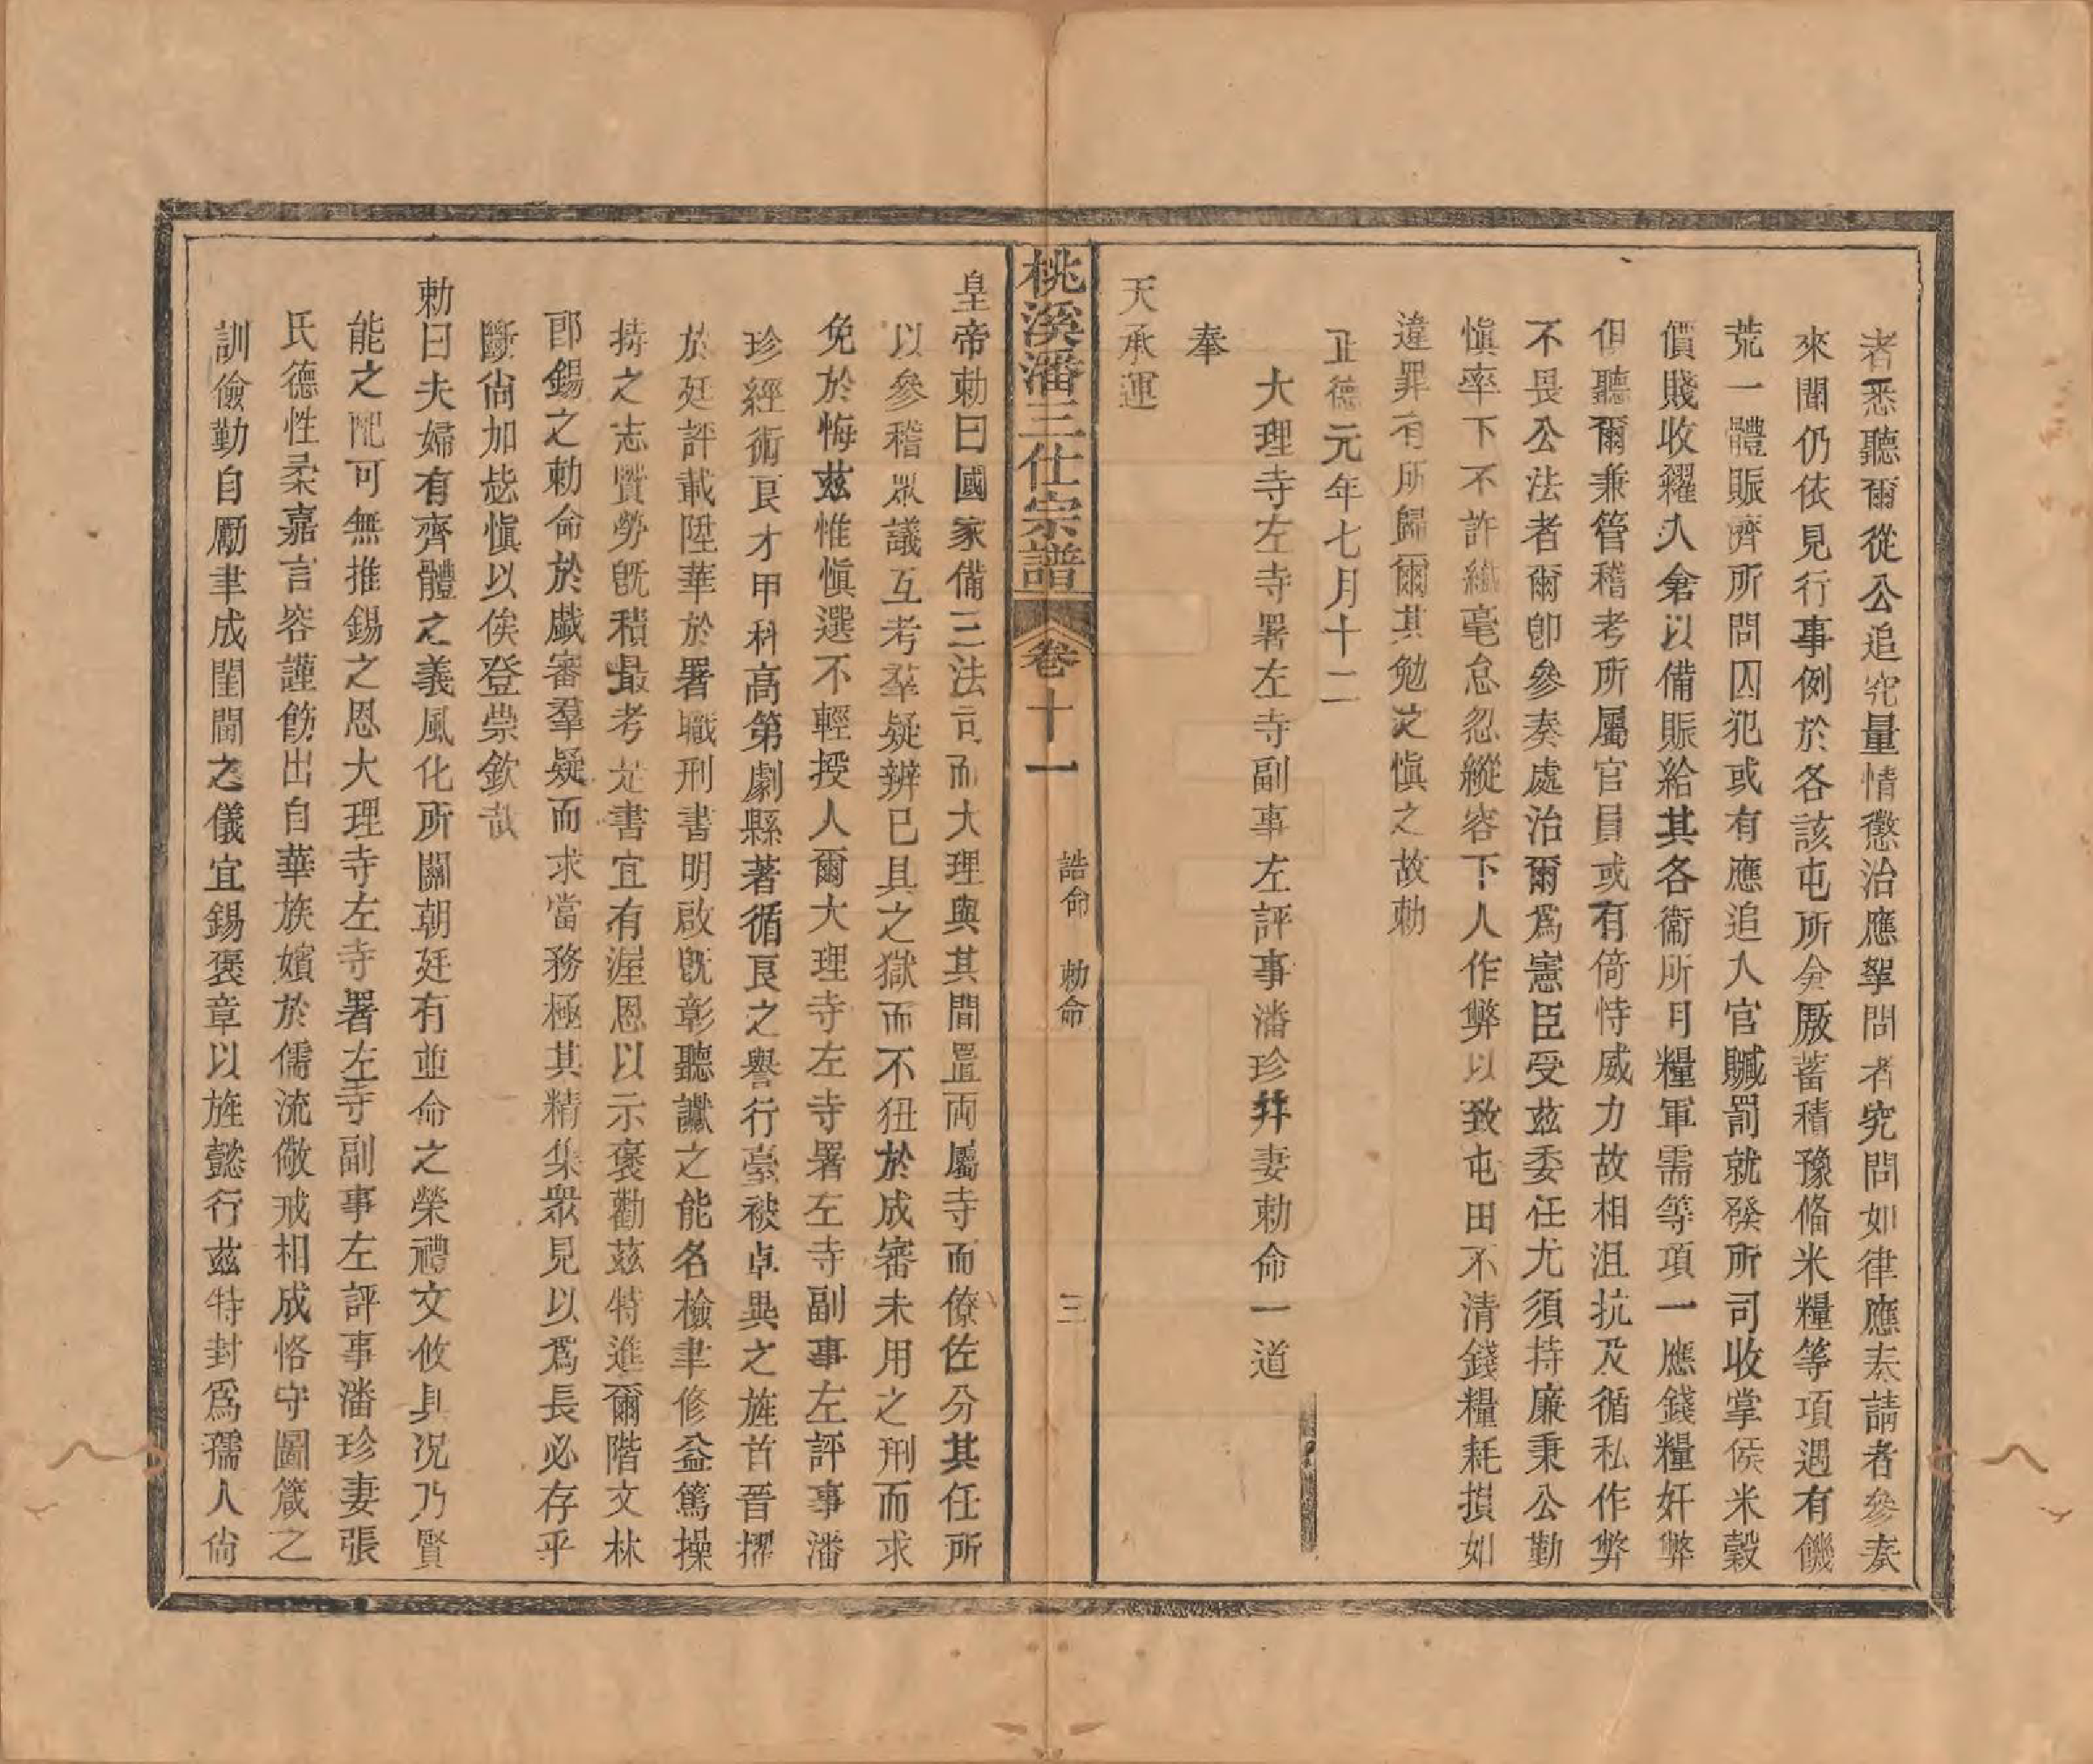 者悉聽爾從公追究量情懲治應拏問者究問如律應奏請者參奏
來聞仍依見行事例於各該屯所分厫蓄積豫俻米糧等項遇有饑
荒一體賑濟所問囚犯或有應追入官贓罰就發所司收掌侯米穀
價賤收糴入倉以備賑給其各衞所月糧軍需等項一應錢糧奸弊
但聽爾兼管稽考所屬官員或有倚恃威力故相沮抗及循私作弊
不畏公法者爾卽參奏處治爾爲憲臣受玆委任尤須持廉秉公勤
愼率下不許纎毫怠忽縱容下人作弊以致屯田不清錢糧耗損如
違罪有所歸爾其勉之愼之故勅
正德元年七月十二
大理寺左寺署左寺副事左評事潘珍幷妻勅命一道
奉
天承運
桃溪潘三仕宗譜 卷十一 誥命 勅命 三
皇帝勅曰國家備三法司而大理與其間置両屬寺而僚佐分其任所
以參稽眾議互考羣疑辨已具之獄而不狃於成審未用之刑而求
免於悔玆惟愼選不輕授人爾大理寺左寺署左寺副事左評事潘
珍經術良才甲科高第劇縣著循良之譽行臺被卓異之旌首晉擢
於廷評載陞華於署職刑書明啟旣彰聽讞之能名檢聿修益篤操
持之志賢勞旣積最考尤書宜有渥恩以示褒勸茲特進爾階文林
郎錫之勅命於戲審羣疑而求當務極其精集衆見以爲長必存乎
斷尙加毖愼以俟登崇欽哉
勅曰夫婦有齊體之義風化所關朝廷有並命之榮禮文攸具况乃賢
能之配可無推錫之恩大理寺左寺署左寺副事左評事潘珍妻張
氏德性柔嘉言容謹飭出自華族嬪於儒流儆戒相成恪守圖箴之
訓儉勤自勵聿成閨閫之儀宜錫褒章以旌懿行茲特封爲孺人尙